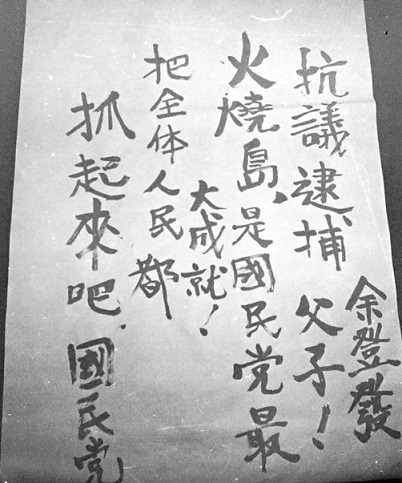 抗議逮捕余登發父子！
火燒島、是國民党最
大成就！
把全体人民都
抓起來吧、國民党